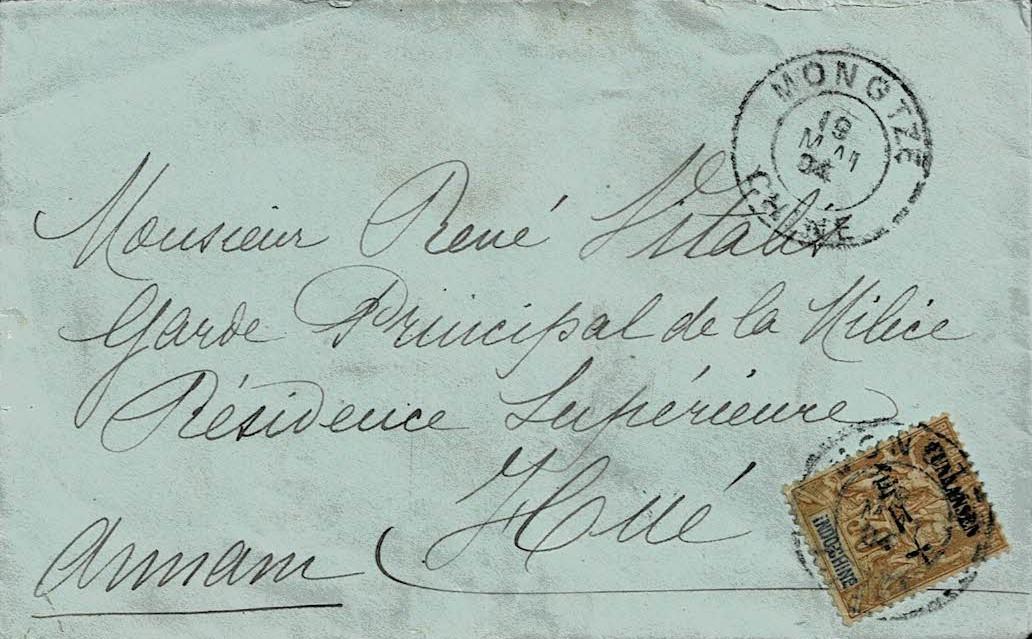 MONGTZE
19
MAI
04
CHINE
Monsieur René Vitalis
Garde Principal de la Milice
Résidence Supérieure
Hué
Annam
INDOCHINE
YUNNANSEN